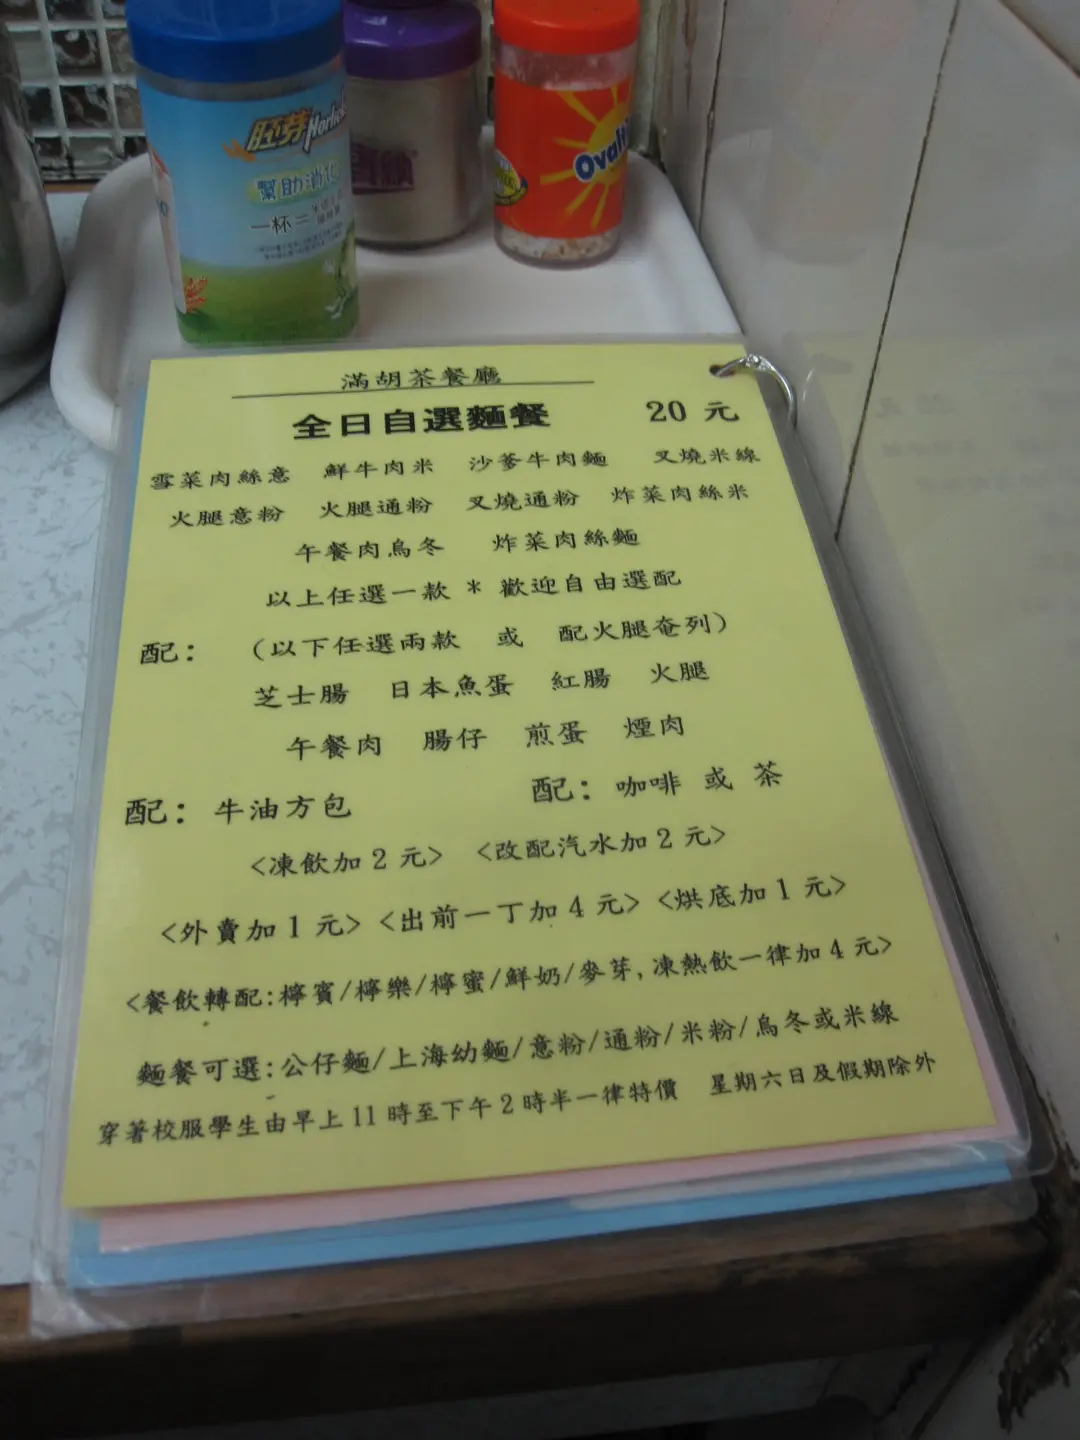 胚芽Horlicks
幫助消化
一杯=
Ovalti
滿胡茶餐廳
全日自選麵餐 20 元
雪菜肉絲意 鮮牛肉米 沙爹牛肉麵 叉燒米線
火腿意粉 火腿通粉 叉燒通粉 炸菜肉絲米
午餐肉烏冬 炸菜肉絲麵
以上任選一款 * 歡迎自由選配
配： （以下任選兩款 或 配火腿奄列）
芝士腸 日本魚蛋 紅腸 火腿
午餐肉 腸仔 煎蛋 煙肉
配：牛油方包 配：咖啡 或 茶
<凍飲加 2 元> <改配汽水加 2 元>
<外賣加 1 元> <出前一丁加 4 元> <烘底加 1 元>
<餐飲轉配:檸賓/檸樂/檸蜜/鮮奶/麥芽,凍熱飲一律加 4 元>
麵餐可選:公仔麵/上海幼麵/意粉/通粉/米粉/烏冬或米線
穿著校服學生由早上 11 時至下午 2 時半一律特價 星期六日及假期除外